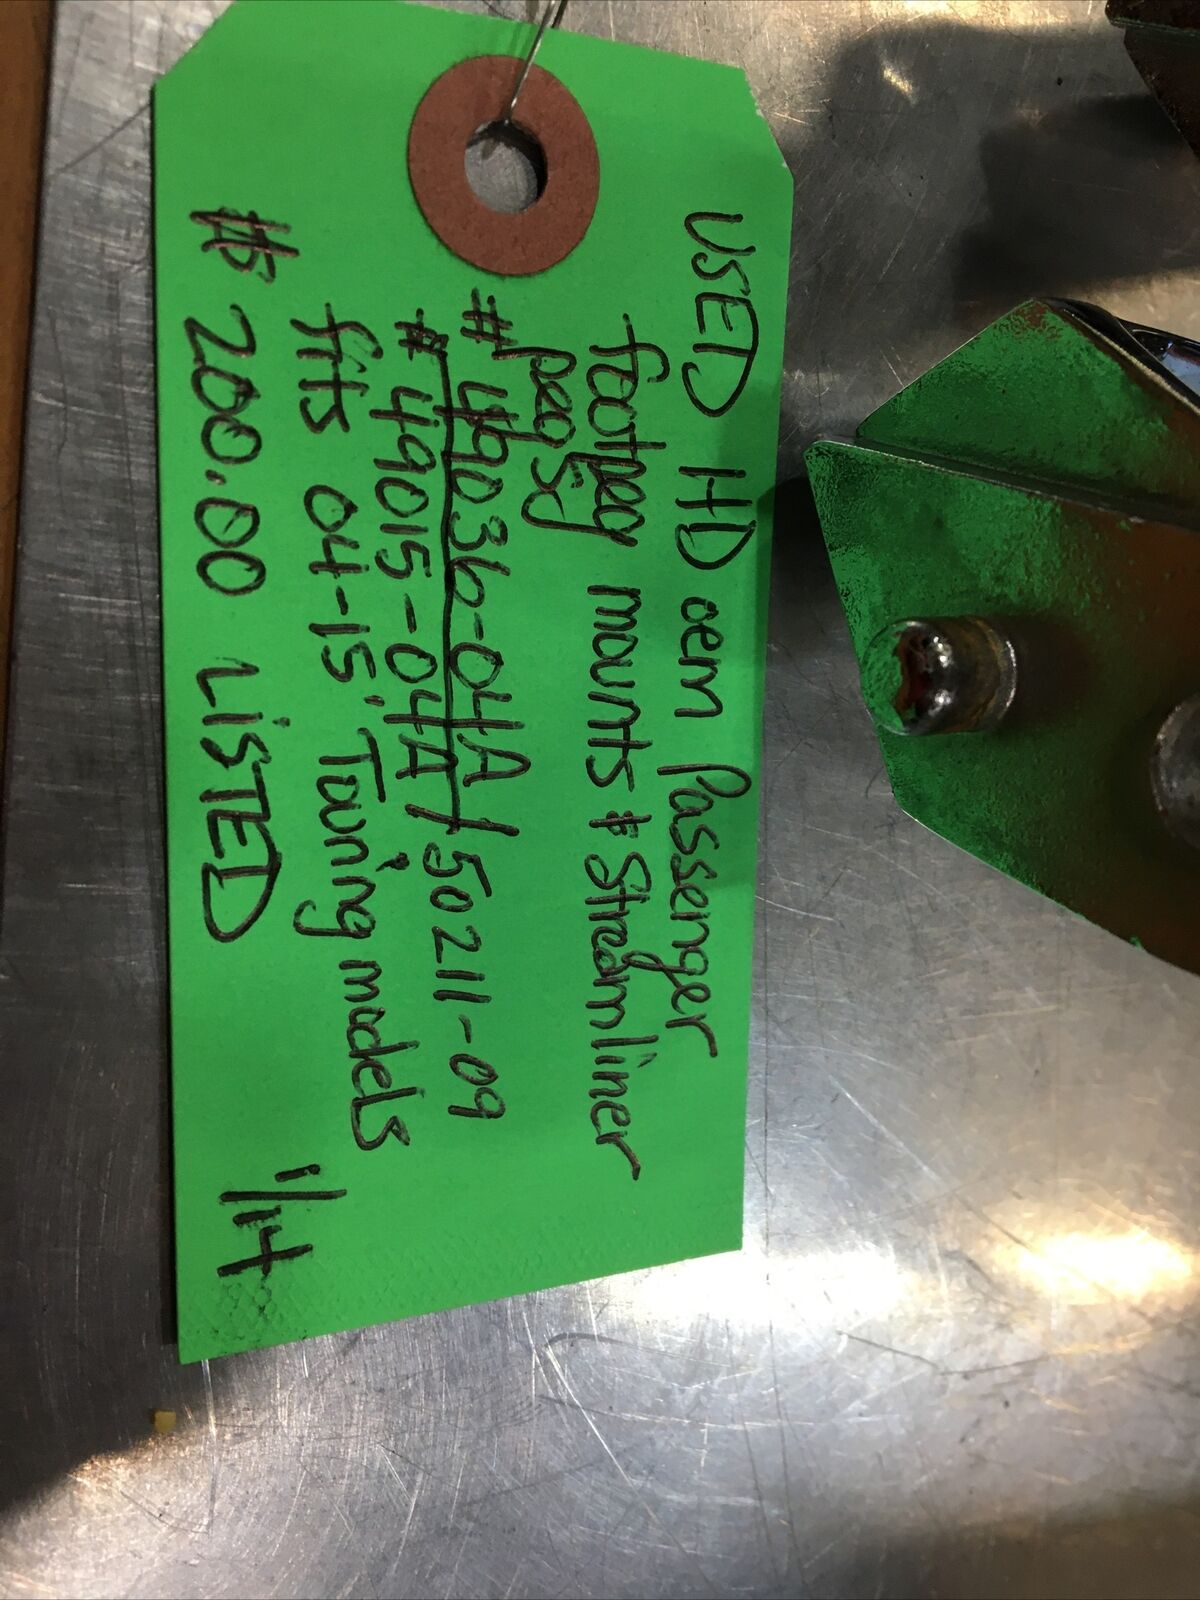 USED HD oem Passenger
footpeg mounts & Streamliner
pegs
# 49036-04A / 50211-09
# 49015-04A
fits 04-15' Touring models
$ 200.00 LISTED
1/14